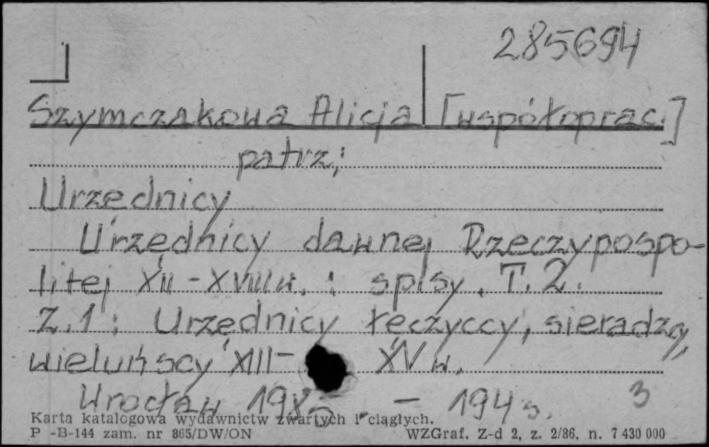 285694
Szymczakowa Alicja [współoprac.]
patrz:
Urzędnicy
Urzędnicy dawnej Rzeczypospo-
litej XII-XVIII w. : spisy. T. 2.
Z. 1 : Urzędnicy łęczyccy, sieradzcy,
wieluńscy XIII- XV w.
Wrocław 1985 - 194 s. 3
Karta katalogowa wydawnictw zwartych i ciągłych.
P-B-144 zam. nr 865/DW/ON WZGraf. Z-d 2, z. 2/86, n. 7 430 000